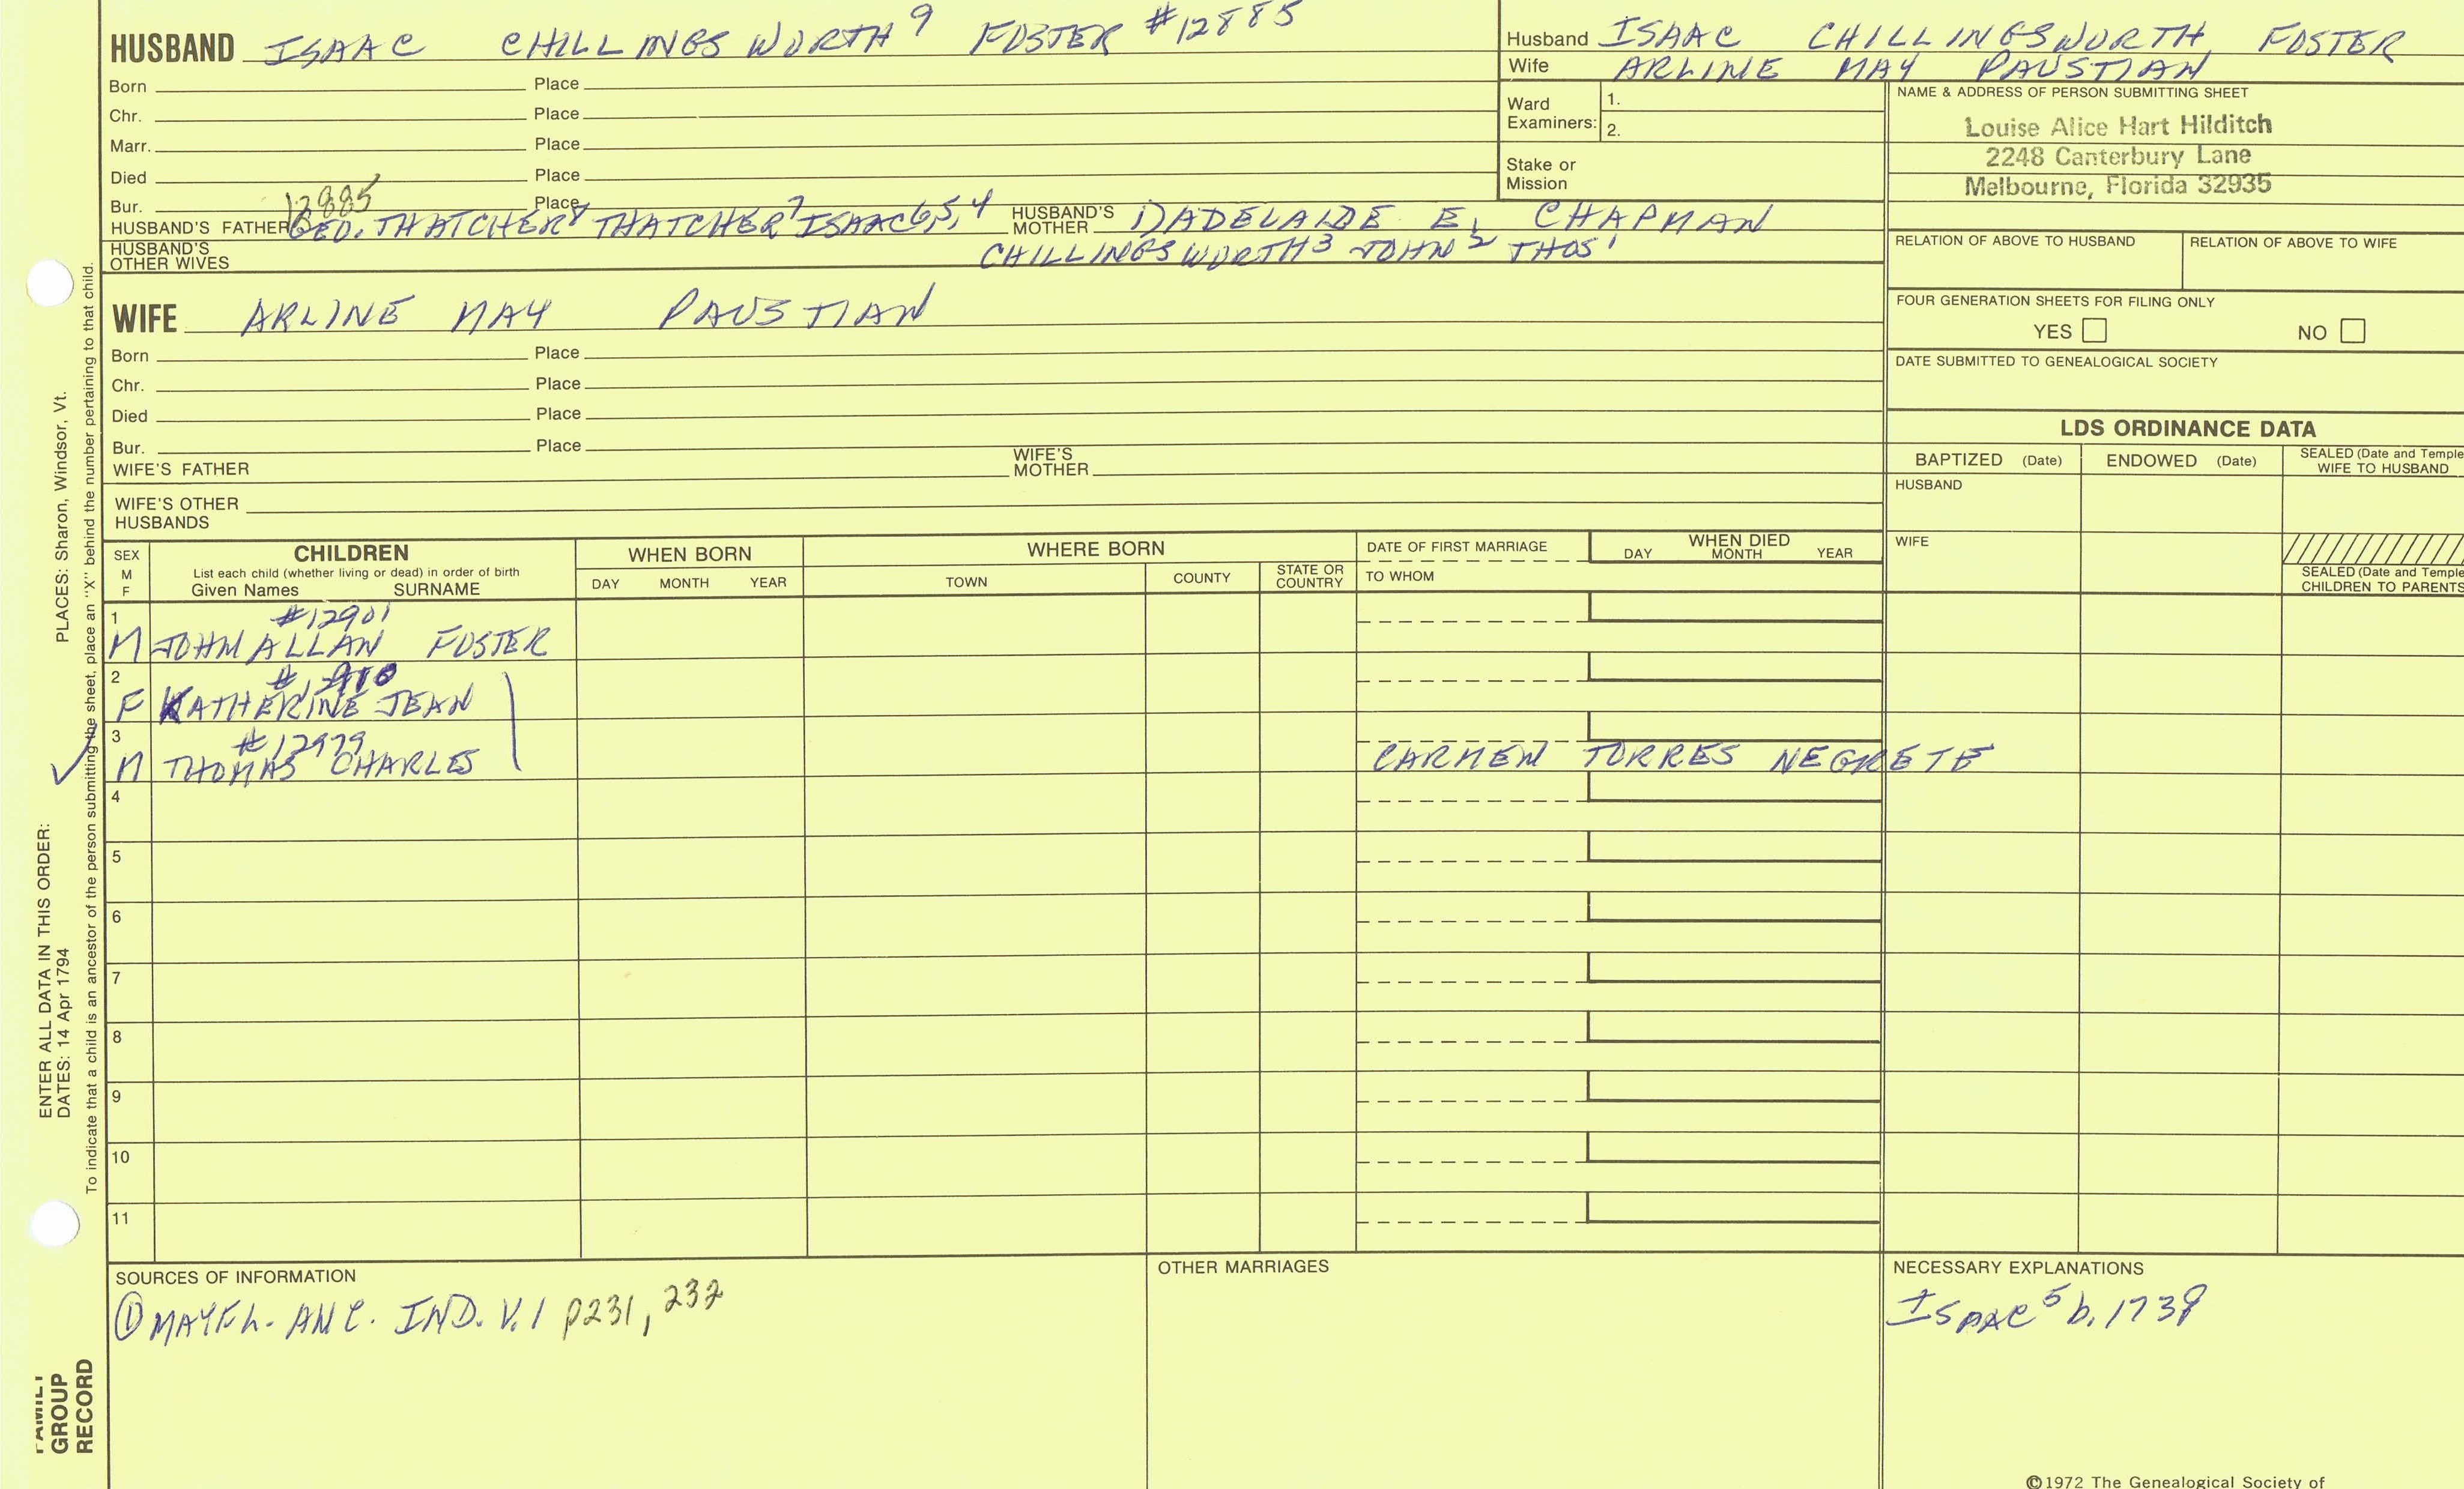 HUSBAND ISAAC CHILLINGSWORTH 9 FOSTER #12885
Born Place
Chr. Place
Marr. Place
Died Place
Bur. Place
12885
HUSBAND'S FATHER GEO. THATCHER 8 THATCHER 7 ISAAC 6,5,4 HUSBAND'S MOTHER 1) ADELAIDE E. CHAPMAN
HUSBAND'S OTHER WIVES CHILLINGSWORTH 3 JOHN 2 THOS 1
WIFE ARLINE MAY PAUSTIAN
Born Place
Chr. Place
Died Place
Bur. Place
WIFE'S FATHER WIFE'S MOTHER
WIFE'S OTHER HUSBANDS
Husband ISAAC CHILLINGSWORTH FOSTER
Wife ARLINE MAY PAUSTIAN
Ward Examiners: 1.
2.
Stake or Mission
NAME & ADDRESS OF PERSON SUBMITTING SHEET
Louise Alice Hart Hilditch
2248 Canterbury Lane
Melbourne, Florida 32935
RELATION OF ABOVE TO HUSBAND RELATION OF ABOVE TO WIFE
FOUR GENERATION SHEETS FOR FILING ONLY
YES NO
DATE SUBMITTED TO GENEALOGICAL SOCIETY
LDS ORDINANCE DATA
BAPTIZED (Date) ENDOWED (Date) SEALED (Date and Temple
WIFE TO HUSBAND
HUSBAND
WIFE
SEALED (Date and Temple
CHILDREN TO PARENTS
SEX
M
F
CHILDREN
List each child (whether living or dead) in order of birth
Given Names SURNAME
WHEN BORN
DAY MONTH YEAR
WHERE BORN
TOWN COUNTY STATE OR COUNTRY
DATE OF FIRST MARRIAGE
TO WHOM
WHEN DIED
DAY MONTH YEAR
1 #12901
M JOHN ALLAN FOSTER
2
F KATHERINE JEAN
3 #12979
M THOMAS CHARLES CARMEN TORRES NEGRETE
4
5
6
7
8
9
10
11
SOURCES OF INFORMATION
① MAYFL. ANC. IND. V. 1 P231, 232
OTHER MARRIAGES
NECESSARY EXPLANATIONS
ISAAC 5 b. 1739
©1972 The Genealogical Society of
PLACES: Sharon, Windsor, Vt.
ENTER ALL DATA IN THIS ORDER:
DATES: 14 Apr 1794
To indicate that a child is an ancestor of the person submitting the sheet, place an "X" behind the number pertaining to that child.
FAMILY
GROUP
RECORD